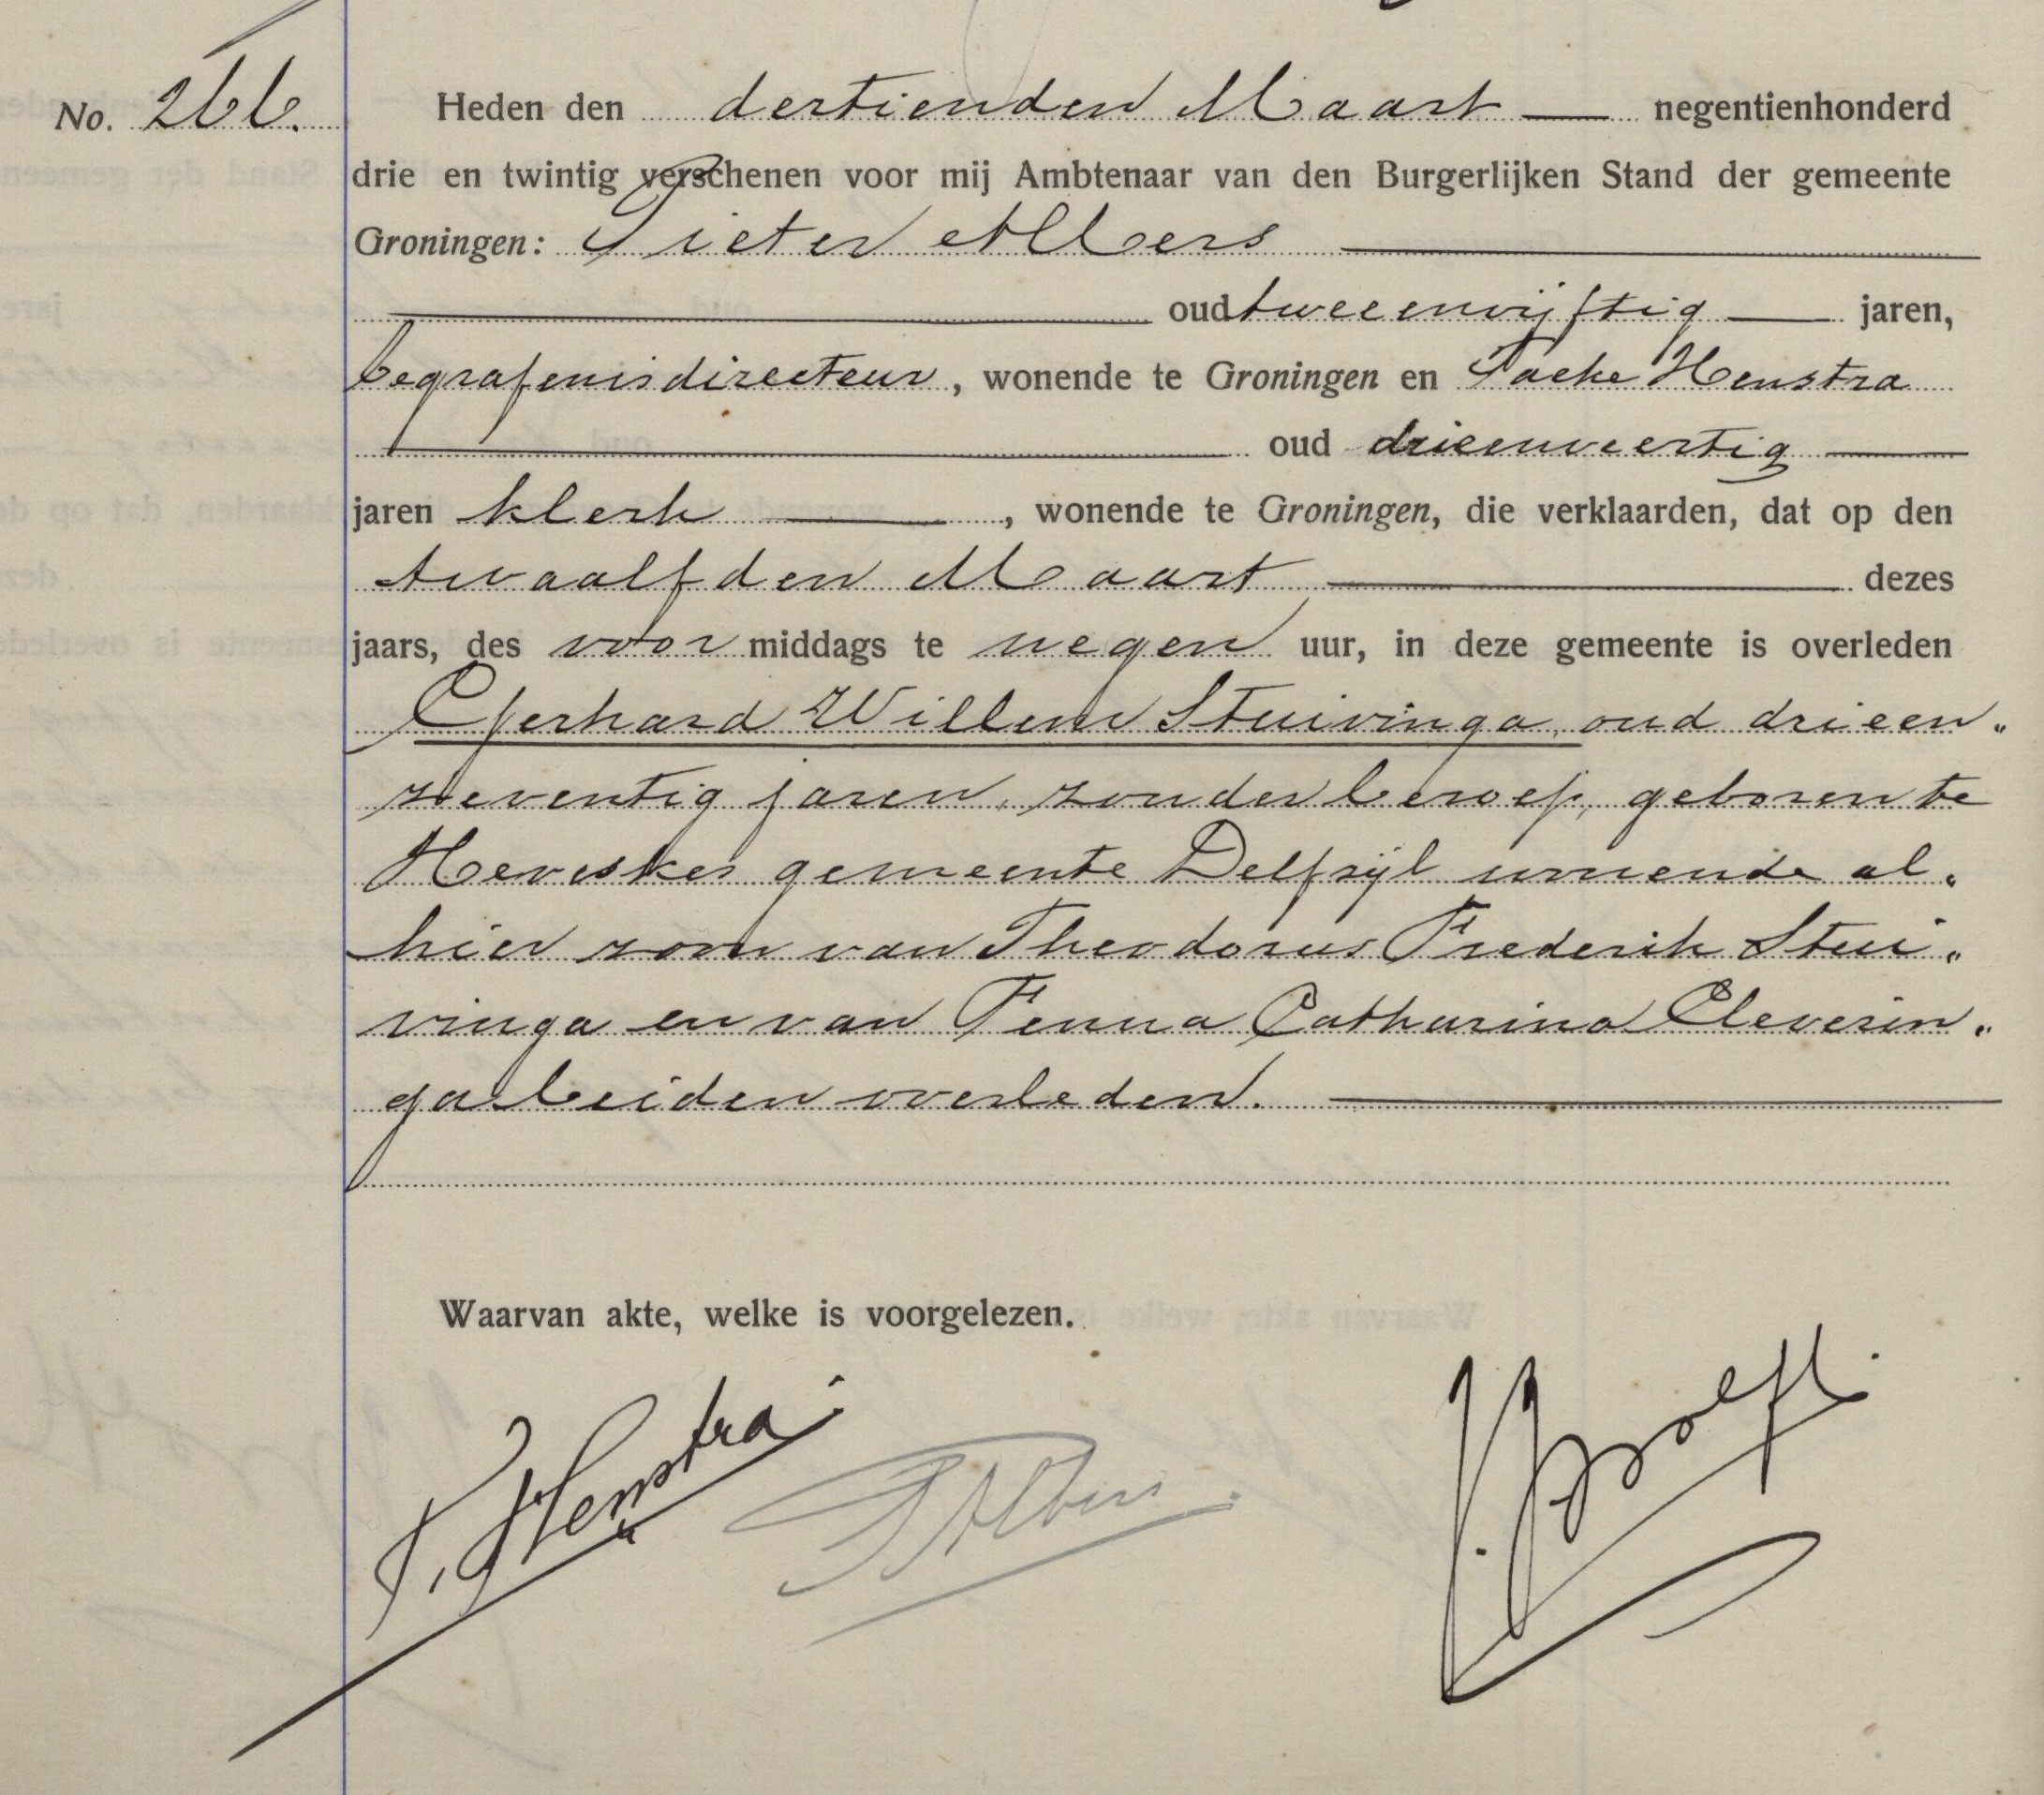 No. 266.
Heden den dertienden Maart negentienhonderd
drie en twintig verschenen voor mij Ambtenaar van den Burgerlijken Stand der gemeente
Groningen: Pieter Albers
oud tweeenvijftig jaren,
begrafenisdirecteur, wonende te Groningen en Foeke Henstra
oud drieenveertig
jaren klerk, wonende te Groningen, die verklaarden, dat op den
twaalfden Maart dezes
jaars, des voor middags te negen uur, in deze gemeente is overleden
Gerhard Willem Stuivinga, oud drieen„
zeventig jaren, zonder beroep, geboren te
Heveskes gemeente Delfzijl wonende al„
hier zoon van Theodorus Frederik Stui„
vinga en van Fenna Catharina Cleverin„
ga beiden overleden.
Waarvan akte, welke is voorgelezen.
F. Henstra
P Albers